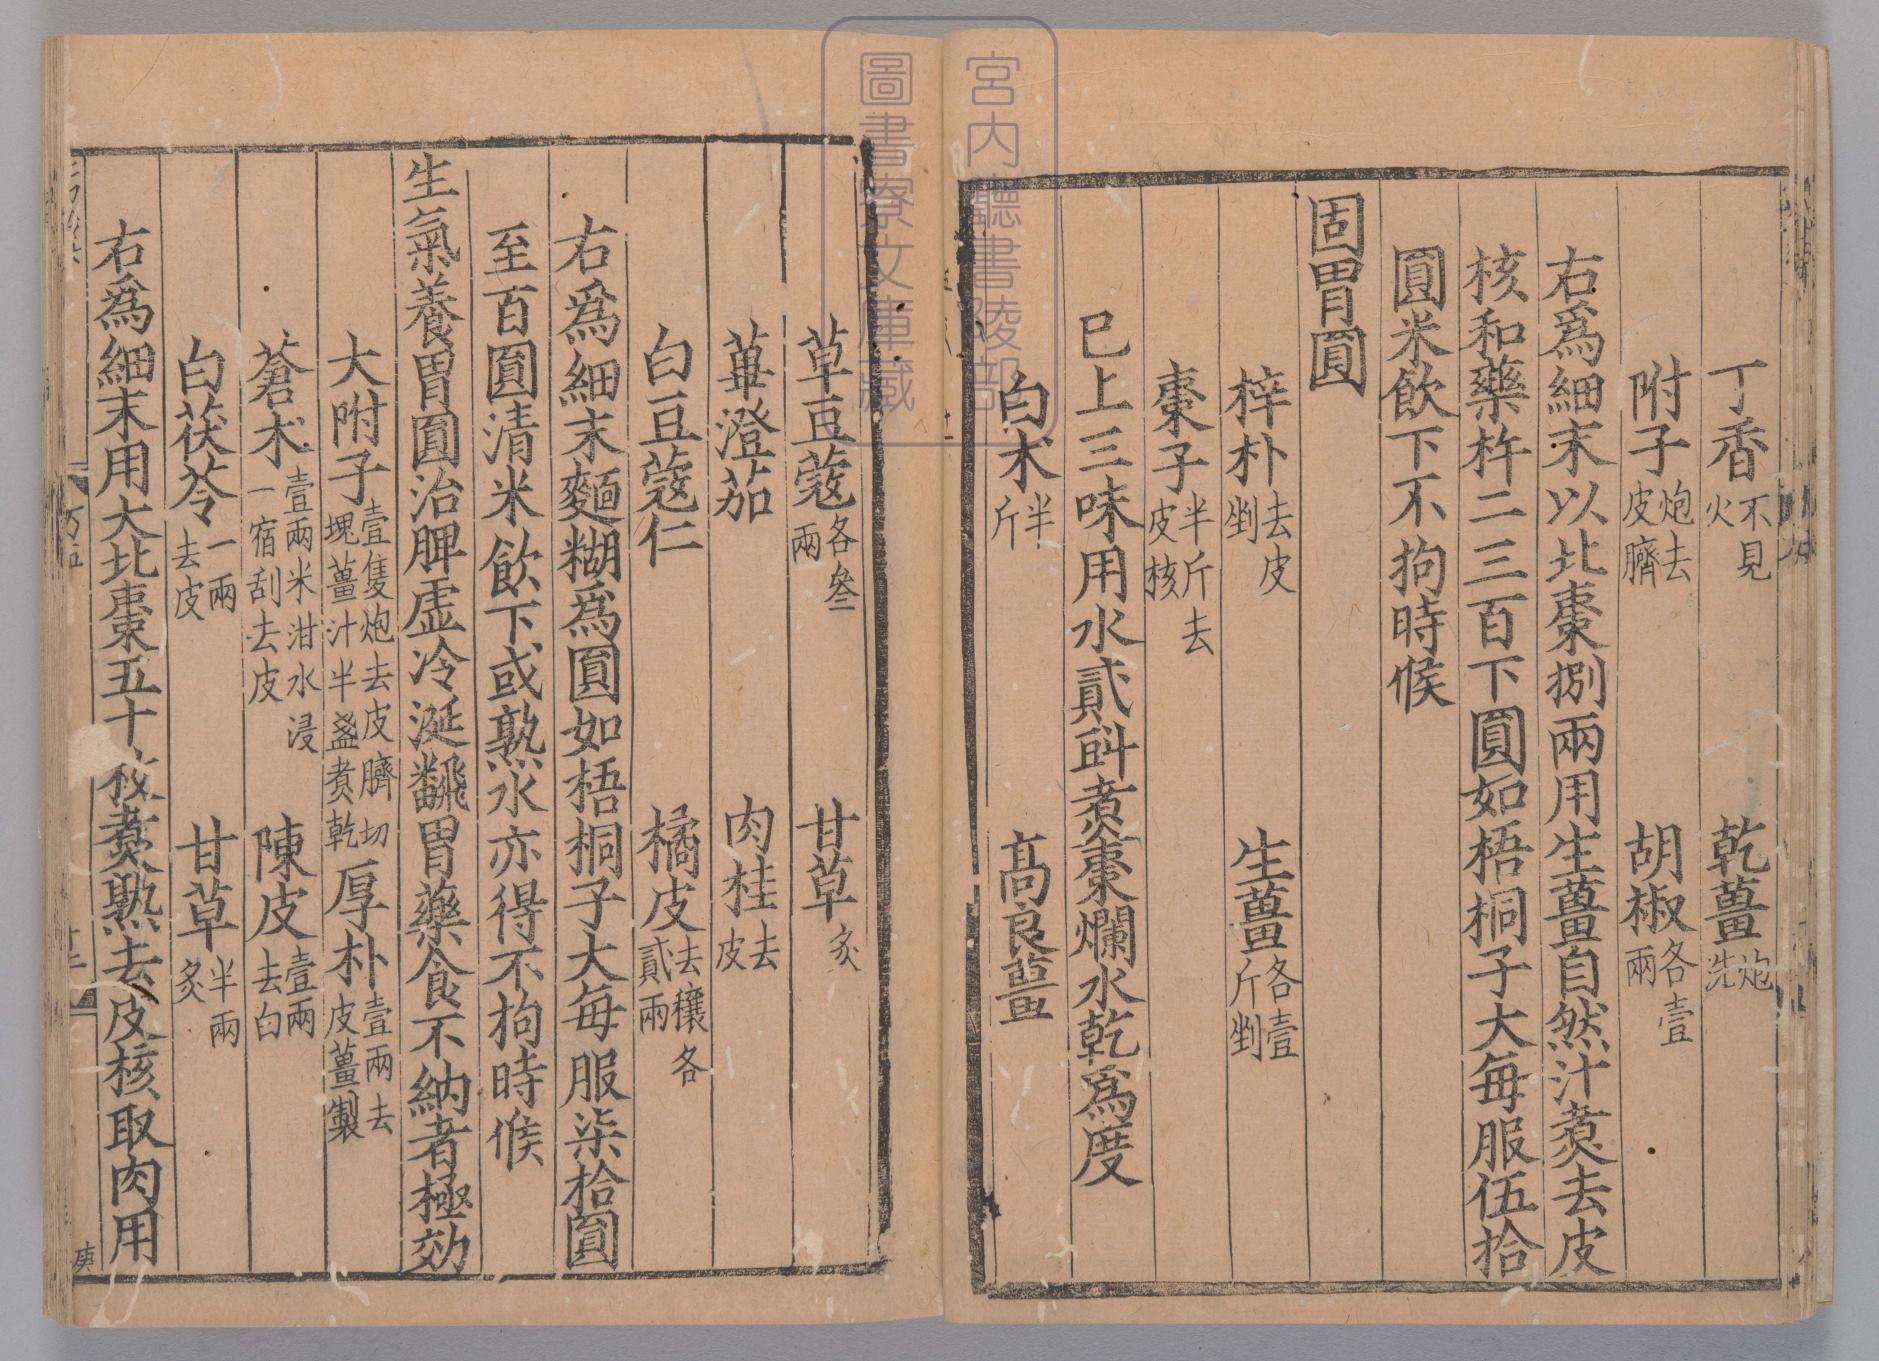 丁香不見火　乾薑炮洗
附子炮去皮臍　胡椒各壹兩
右爲細末以北棗捌兩用生薑自然汁煑去皮
核和藥杵二三百下圓如梧桐子大每服伍拾
圓米飲下不拘時候
固胃圓
梓朴去皮剉　生薑各壹斤剉
棗子半斤去皮核
已上三味用水貳㪷煑棗爛水乾爲度
白朮半斤　高良薑
草豆蔻各叄兩　甘草炙
蓽澄茄　肉桂去皮
白豆蔻仁　橘皮去穰各貳兩
右爲細末麵糊爲圓如梧桐子大每服柒拾圓
至百圓清米飲下或熟水亦得不拘時候
生氣養胃圓治脾虛冷涎飜胃藥食不納者極効
大附子壹隻炮去皮臍切塊薑汁半盞煑乾　厚朴壹兩去皮薑製
蒼朮壹兩米泔水浸一宿刮去皮　陳皮壹兩去白
白茯苓一兩去皮　甘草半兩炙
右爲細末用大北棗五十枚煑熟去皮核取肉用
庚
宮内廳書陵部
圖書寮文庫藏